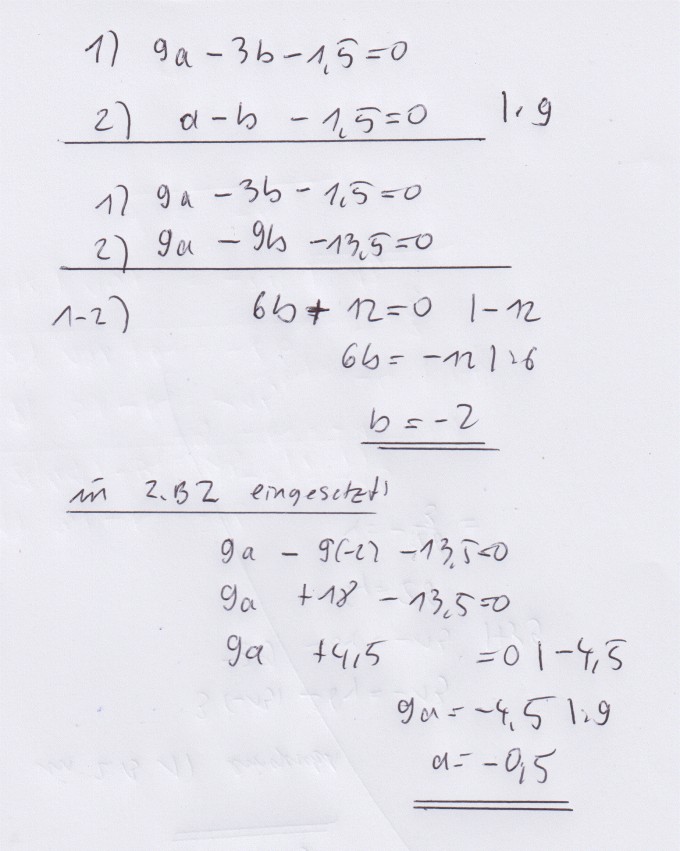 1) 9a - 3b - 1,5 = 0
2) a - b - 1,5 = 0 |· 9
1) 9a - 3b - 1,5 = 0
2) 9a - 9b - 13,5 = 0
1-2) 6b + 12 = 0 | - 12
6b = -12 | : 6
b = -2
in z.B 2 eingesetzt:
9a - 9(-2) - 13,5 = 0
9a + 18 - 13,5 = 0
9a + 4,5 = 0 | - 4,5
9a = -4,5 | : 9
a = -0,5